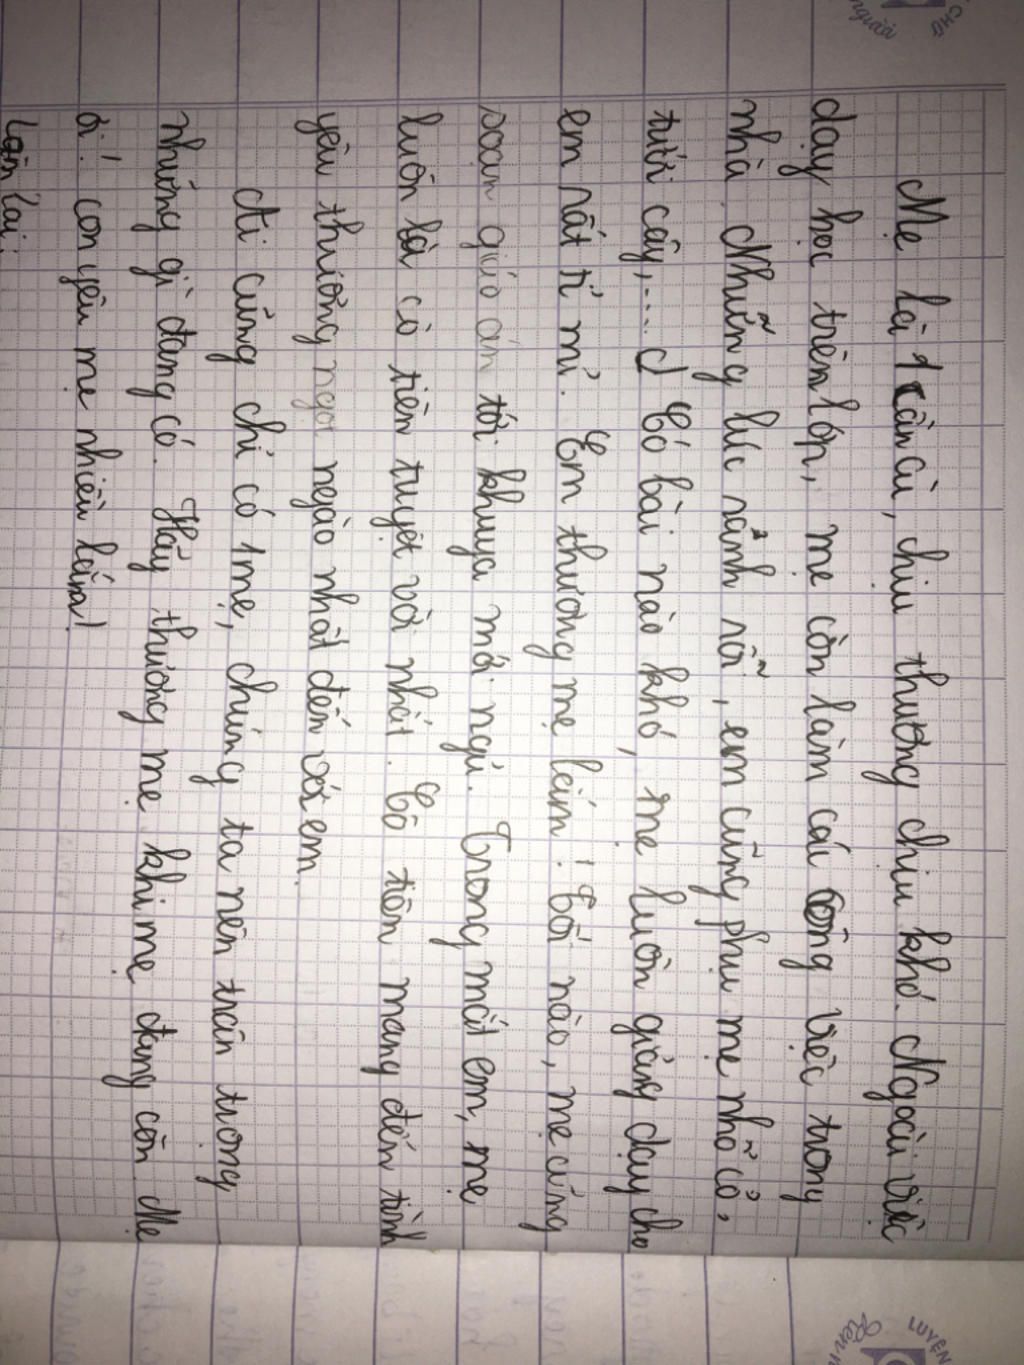 Mẹ là 1 cần cù, chịu thương chịu khó. Ngoài việc
dạy học trên lớp, mẹ còn làm cái công việc trong
nhà. Những lúc rảnh rỗi, em cũng phụ mẹ nhổ cỏ,
tưới cây,... Có bài nào khó, mẹ luôn giảng dạy cho
em rất tỉ mỉ. Em thương mẹ lắm! Tối nào, mẹ cũng
soạn giáo án tới khuya mới ngủ. Trong mắt em, mẹ
luôn là cô tiên tuyệt vời nhất. Cô tiên mang đến tình
yêu thương ngọt ngào nhất đến với em.
Ai cũng chỉ có 1 mẹ, chúng ta nên trân trọng
những gì đang có. Hãy thương mẹ khi mẹ đang còn. Mẹ
ơi! con yêu mẹ nhiều lắm!
Làm lại:
người
CHỮ
LUYỆN
Rèn